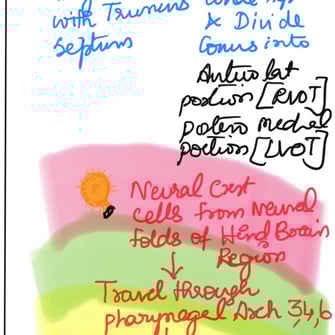 with Truncus
Septum
& Divide
Conus into
Antero lat
portion [RVOT]
Postero medial
portion [LVOT]
Neural Crest
cells from Neural
folds of Hind Brain
Region
↓
Travel through
pharyngeal Arch 3,4,6